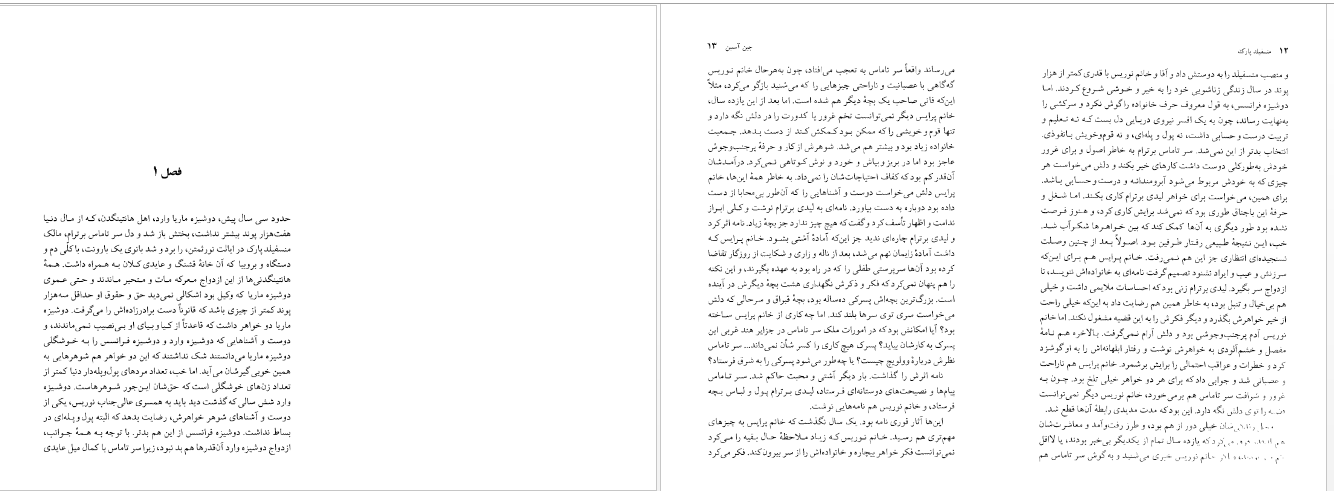 فصل ۱
حدود سی سال پیش، دوشیزه ماریا وارد، اهل هانتینگدن، که از مال دنیا
هفت‌هزار پوند بیشتر نداشت، بختش باز شد و دل سر تاماس برترام، مالک
منسفیلد پارک در ایالت نورثمتن، را برد و شد بانوی یک بارونت، با کلّی دم و
دستگاه و بروبیا که آن خانهٔ قشنگ و عایدی کلان به همراه داشت. همهٔ
هانتینگدنی‌ها از این ازدواج معرکه مات و متحیر ماندند و حتی عموی
دوشیزه ماریا که وکیل بود اشکالی نمی‌دید حق و حقوق او حداقل سه‌هزار
پوند کمتر از چیزی باشد که قانوناً دست برادرزاده‌اش را می‌گرفت. دوشیزه
ماریا دو خواهر داشت که قاعدتاً از کیا و بیای او بی‌نصیب نمی‌ماندند، و
دوست و آشناهایی که دوشیزه وارد و دوشیزه فرانسس را به خوشگلی
دوشیزه ماریا می‌دانستند شک نداشتند که این دو خواهر هم شوهرهایی به
همین خوبی گیرشان می‌آید. اما خب، تعداد مردهای پول‌وپله‌دار دنیا کمتر از
تعداد زن‌های خوشگلی است که حق‌شان این‌جور شوهرهاست. دوشیزه
وارد شش سالی که گذشت دید باید به همسری عالی‌جناب نوریس، یکی از
دوست و آشناهای شوهر خواهرش، رضایت بدهد که البته پول و پله‌ای در
بساط نداشت. دوشیزه فرانسس از این هم بدتر. با توجه به همهٔ جوانب،
ازدواج دوشیزه وارد آن‌قدرها هم بد نبود، زیرا سر تاماس با کمال میل عایدی
۱۲ منسفیلد پارک
و منصب منسفیلد را به دوستش داد و آقا و خانم نوریس با قدری کمتر از هزار
پوند در سال زندگی زناشویی خود را به خیر و خوشی شروع کردند. اما
دوشیزه فرانسس، به قول معروف حرف خانواده را گوش نکرد و سرکشی را
به‌نهایت رساند، چون به یک افسر نیروی دریایی دل بست که نه تعلیم و
تربیت درست و حسابی داشت، نه پول و پله‌ای، و نه قوم‌وخویش بانفوذی.
انتخاب بدتر از این نمی‌شد. سر تاماس برترام به خاطر اصول و برای غرور
خودش به‌طورکلی دوست داشت کارهای خیر بکند و دلش می‌خواست هر
چیزی که به خودش مربوط می‌شود آبرومندانه و درست و حسابی باشد.
برای همین، می‌خواست برای خواهر لیدی برترام کاری بکند. اما شغل و
حرفهٔ این باجناق طوری بود که نمی‌شد برایش کاری کرد، و هنوز فرصت
نشده بود طور دیگری به آن‌ها کمک کند که بین خواهرها شکرآب شد.
خب، این نتیجهٔ طبیعی رفتار طرفین بود. اصولاً بعد از چنین وصلت
نسنجیده‌ای انتظاری جز این هم نمی‌رفت. خانم پرایس هم برای این‌که
سرزنش و عیب و ایراد نشنود تصمیم گرفت نامه‌ای به خانواده‌اش ننویسد، تا
ازدواج سر بگیرد. لیدی برترام زنی بود که احساسات ملایمی داشت و خیلی
هم بی‌خیال و تنبل بود، به خاطر همین هم رضایت داد به این‌که خیلی راحت
از خیر خواهرش بگذرد و دیگر فکرش را به این قضیه مشغول نکند. اما خانم
نوریس آدم پرجنب‌وجوشی بود و دلش آرام نمی‌گرفت. بالاخره هم نامهٔ
مفصل و خشم‌آلودی به خواهرش نوشت و رفتار ابلهانه‌اش را به او گوشزد
کرد و خطرات و عواقب احتمالی را برایش برشمرد. خانم پرایس هم ناراحت
و عصبانی شد و جوابی داد که برای هر دو خواهر خیلی تلخ بود. چون به
غرور و شرافت سر تاماس هم برمی‌خورد، خانم نوریس دیگر نمی‌توانست
را توی دلش نگه دارد. این بود که مدت مدیدی رابطهٔ آن‌ها قطع شد.
محل زندگی‌شان خیلی دور از هم بود، و طرز رفت‌وآمد و معاشرت‌شان
هم می‌کرد که یازده سال تمام از یکدیگر بی‌خبر بودند، یا لااقل
خانم نوریس خبری می‌شنید و به گوش سر تاماس هم
جین آستین ۱۳
می‌رساند واقعاً سر تاماس به تعجب می‌افتاد، چون به‌هرحال خانم نوریس
گه‌گاهی با عصبانیت و ناراحتی چیزهایی را که می‌شنید بازگو می‌کرد، مثلاً
این‌که فانی صاحب یک بچهٔ دیگر هم شده است. اما بعد از این یازده سال،
خانم پرایس دیگر نمی‌توانست تخم غرور یا کدورت را در دلش نگه دارد و
تنها قوم و خویشی را که ممکن بود کمکش کند از دست بدهد. جمعیت
خانواده زیاد بود و بیشتر هم می‌شد. شوهرش از کار و حرفهٔ پرجنب‌وجوش
عاجز بود اما در بریز و بپاش و خورد و نوش کوتاهی نمی‌کرد. درآمدشان
آن‌قدر کم بود که کفاف احتیاجات‌شان را نمی‌داد. به خاطر همهٔ این‌ها، خانم
پرایس دلش می‌خواست دوست و آشناهایی را که آن‌طور بی‌محابا از دست
داده بود دوباره به دست بیاورد. نامه‌ای به لیدی برترام نوشت و کلی ابراز
ندامت و اظهار تأسف کرد و گفت که هیچ چیز ندارد جز بچهٔ زیاد. نامه اثر کرد
و لیدی برترام چاره‌ای ندید جز این‌که آمادهٔ آشتی بشود. خانم پرایس که
داشت آمادهٔ زایمان نهم می‌شد، بعد از ناله و زاری و شکایت از روزگار تقاضا
کرده بود آن‌ها سرپرستی طفلی را که در راه بود به عهده بگیرند، و این نکته
را هم پنهان نمی‌کرد که فکر و ذکرش نگهداری هشت بچهٔ دیگرش در آینده
است. بزرگ‌ترین بچه‌اش پسرکی ده‌ساله بود، بچهٔ قبراق و سرحالی که دلش
می‌خواست سری توی سرها بلند کند. اما چه‌کاری از خانم پرایس ساخته
بود؟ آیا امکانش بود که در امورات ملک سر تاماس در جزایر هند غربی این
پسرک به کارشان بیاید؟ پسرک هیچ کاری را کسر شأن نمی‌داند... سر تاماس
نظرش دربارهٔ وولویچ چیست؟ یا چه‌طور می‌شود پسرکی را به شرق فرستاد؟
نامه اثرش را گذاشت. بار دیگر آشتی و محبت حاکم شد. سر تاماس
پیام‌ها و نصیحت‌های دوستانه‌ای فرستاد، لیدی برترام پول و لباس بچه
فرستاد، و خانم نوریس هم نامه‌هایی نوشت.
این‌ها آثار فوری نامه بود. یک سال نگذشت که خانم پرایس به چیزهای
مهم‌تری هم رسید. خانم نوریس که زیاد ملاحظهٔ حال بقیه را می‌کرد
نمی‌توانست فکر خواهر بیچاره و خانواده‌اش را از سر بیرون کند. فکر می‌کرد